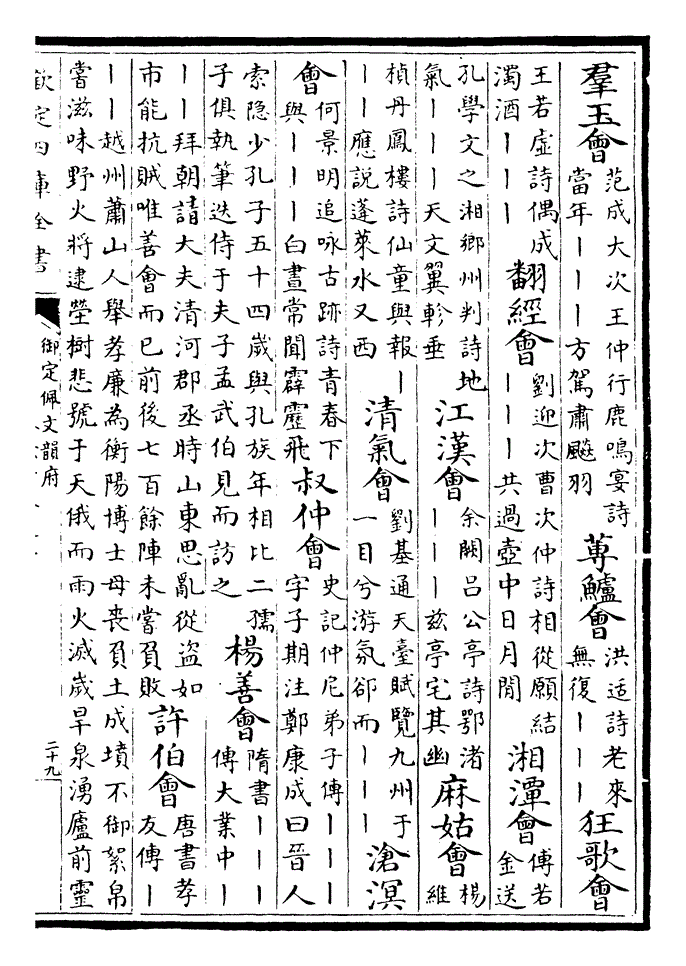 羣玉會
范成大次王仲行鹿鳴宴詩
當年丨丨丨方駕肅飈羽
蓴鱸會
洪适詩老來
無復丨丨丨
狂歌會
王若虛詩偶成
濁酒丨丨丨
翻經會
劉迎次曹次仲詩相從願結
丨丨丨共過壺中日月閒
湘潭會
傅若
金送
孔學文之湘鄉州判詩地
氣丨丨丨天文翼軫垂
江漢會
余闕呂公亭詩鄂渚
丨丨丨兹亭宅其幽
麻姑會
楊
維
楨丹鳳樓詩仙童與報丨
丨丨應説蓬萊水又西
清氣會
劉基通天臺賦覽九州于
一目兮游氛卻而丨丨丨
滄溟
會
何景明追咏古跡詩青春下
與丨丨丨白晝常聞霹靂飛
叔仲會
史記仲尼弟子傳丨丨丨
字子期注鄭康成曰晉人
索隐少孔子五十四歲與孔族年相比二孺
子俱執筆迭侍于夫子孟武伯見而訪之
楊善會
隋書丨丨丨
傳大業中丨
丨丨拜朝請大夫清河郡丞時山東思亂從盗如
市能抗賊唯善會而已前後七百餘陣未嘗負敗
許伯會
唐書孝
友傳丨
丨丨越州蕭山人舉孝廉為衡陽博士母喪負土成墳不御絮帛
嘗滋味野火將逮塋樹悲號于天俄而雨火滅歲旱泉湧廬前靈
欽定四庫全書
御定佩文韻府
二十九